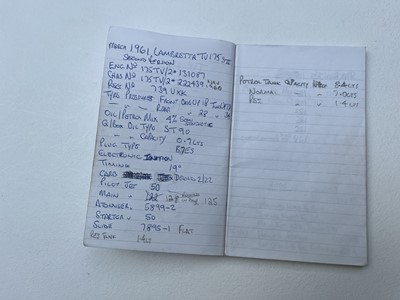 MARCH 1961, LAMBRETTA TV 175 S II
SECOND VERSION
ENG NO 175 TV/2* 131087
CHAS NO 175 TV/2* 222439
REG NO 739 UXK
TYRE PRESSURES FRONT 18
" " REAR " 28
OIL/PETROL MIX 4%
G/BOX OIL TYPE ST 90
" " CAPACITY 0.7 LTS
PLUG TYPE
ELECTRONIC IGNITION
TIMING 19°
CARB 2/22
PILOT JET 50
MAIN " 122 128 125
ATOMISER 5899-2
STARTER " 50
SLIDE 7895-1
RES FUEL 1.4 LT
PETROL TANK CAPACITY 8.4 LTS
NORMAL " " 7.0 LTS
RES " " 1.4 LTS